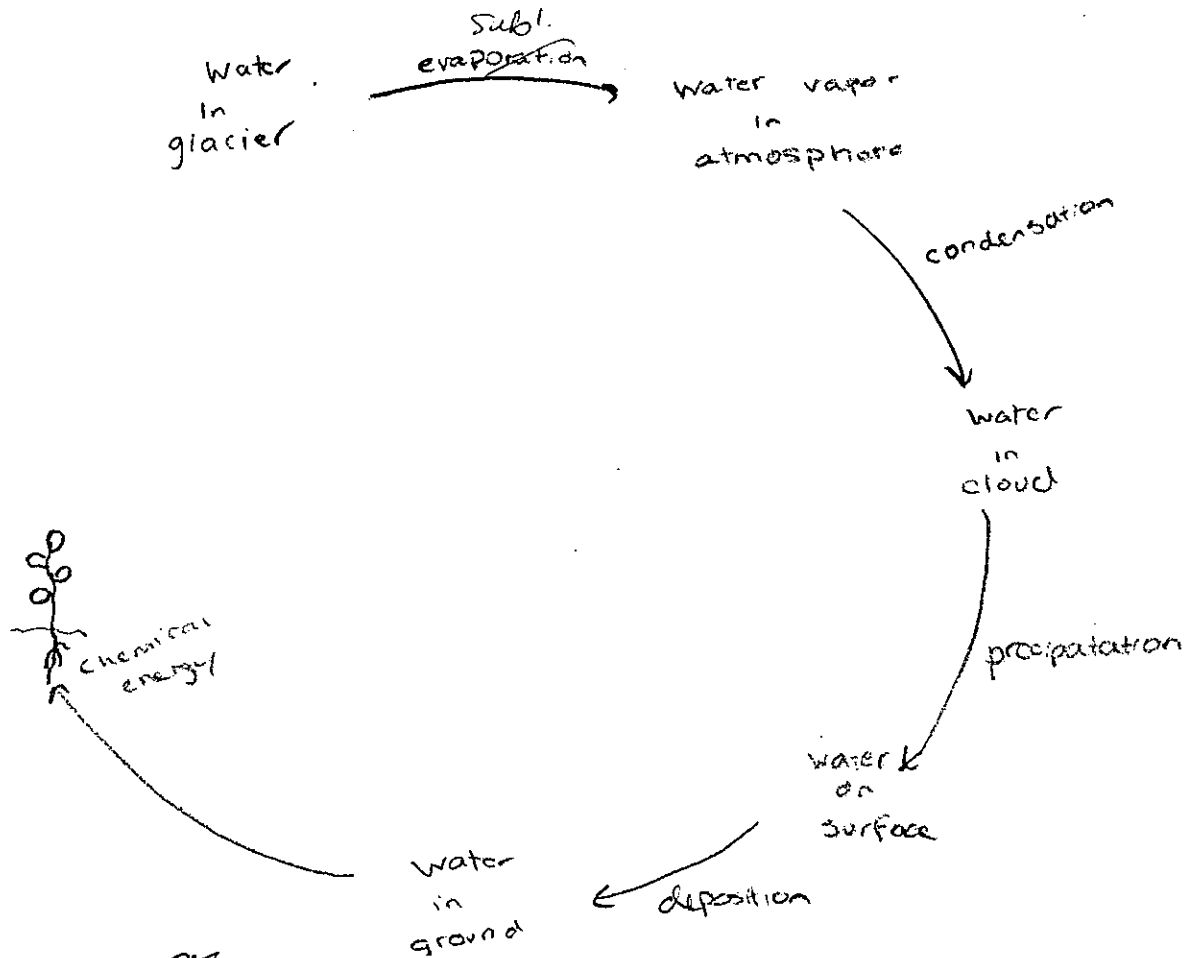 Subl.
evaporation
Water
in
glacier
Water vapor
in
atmosphere
condensation
water
in
cloud
precipatation
water
on
surface
deposition
Water
in
ground
chemical
energy